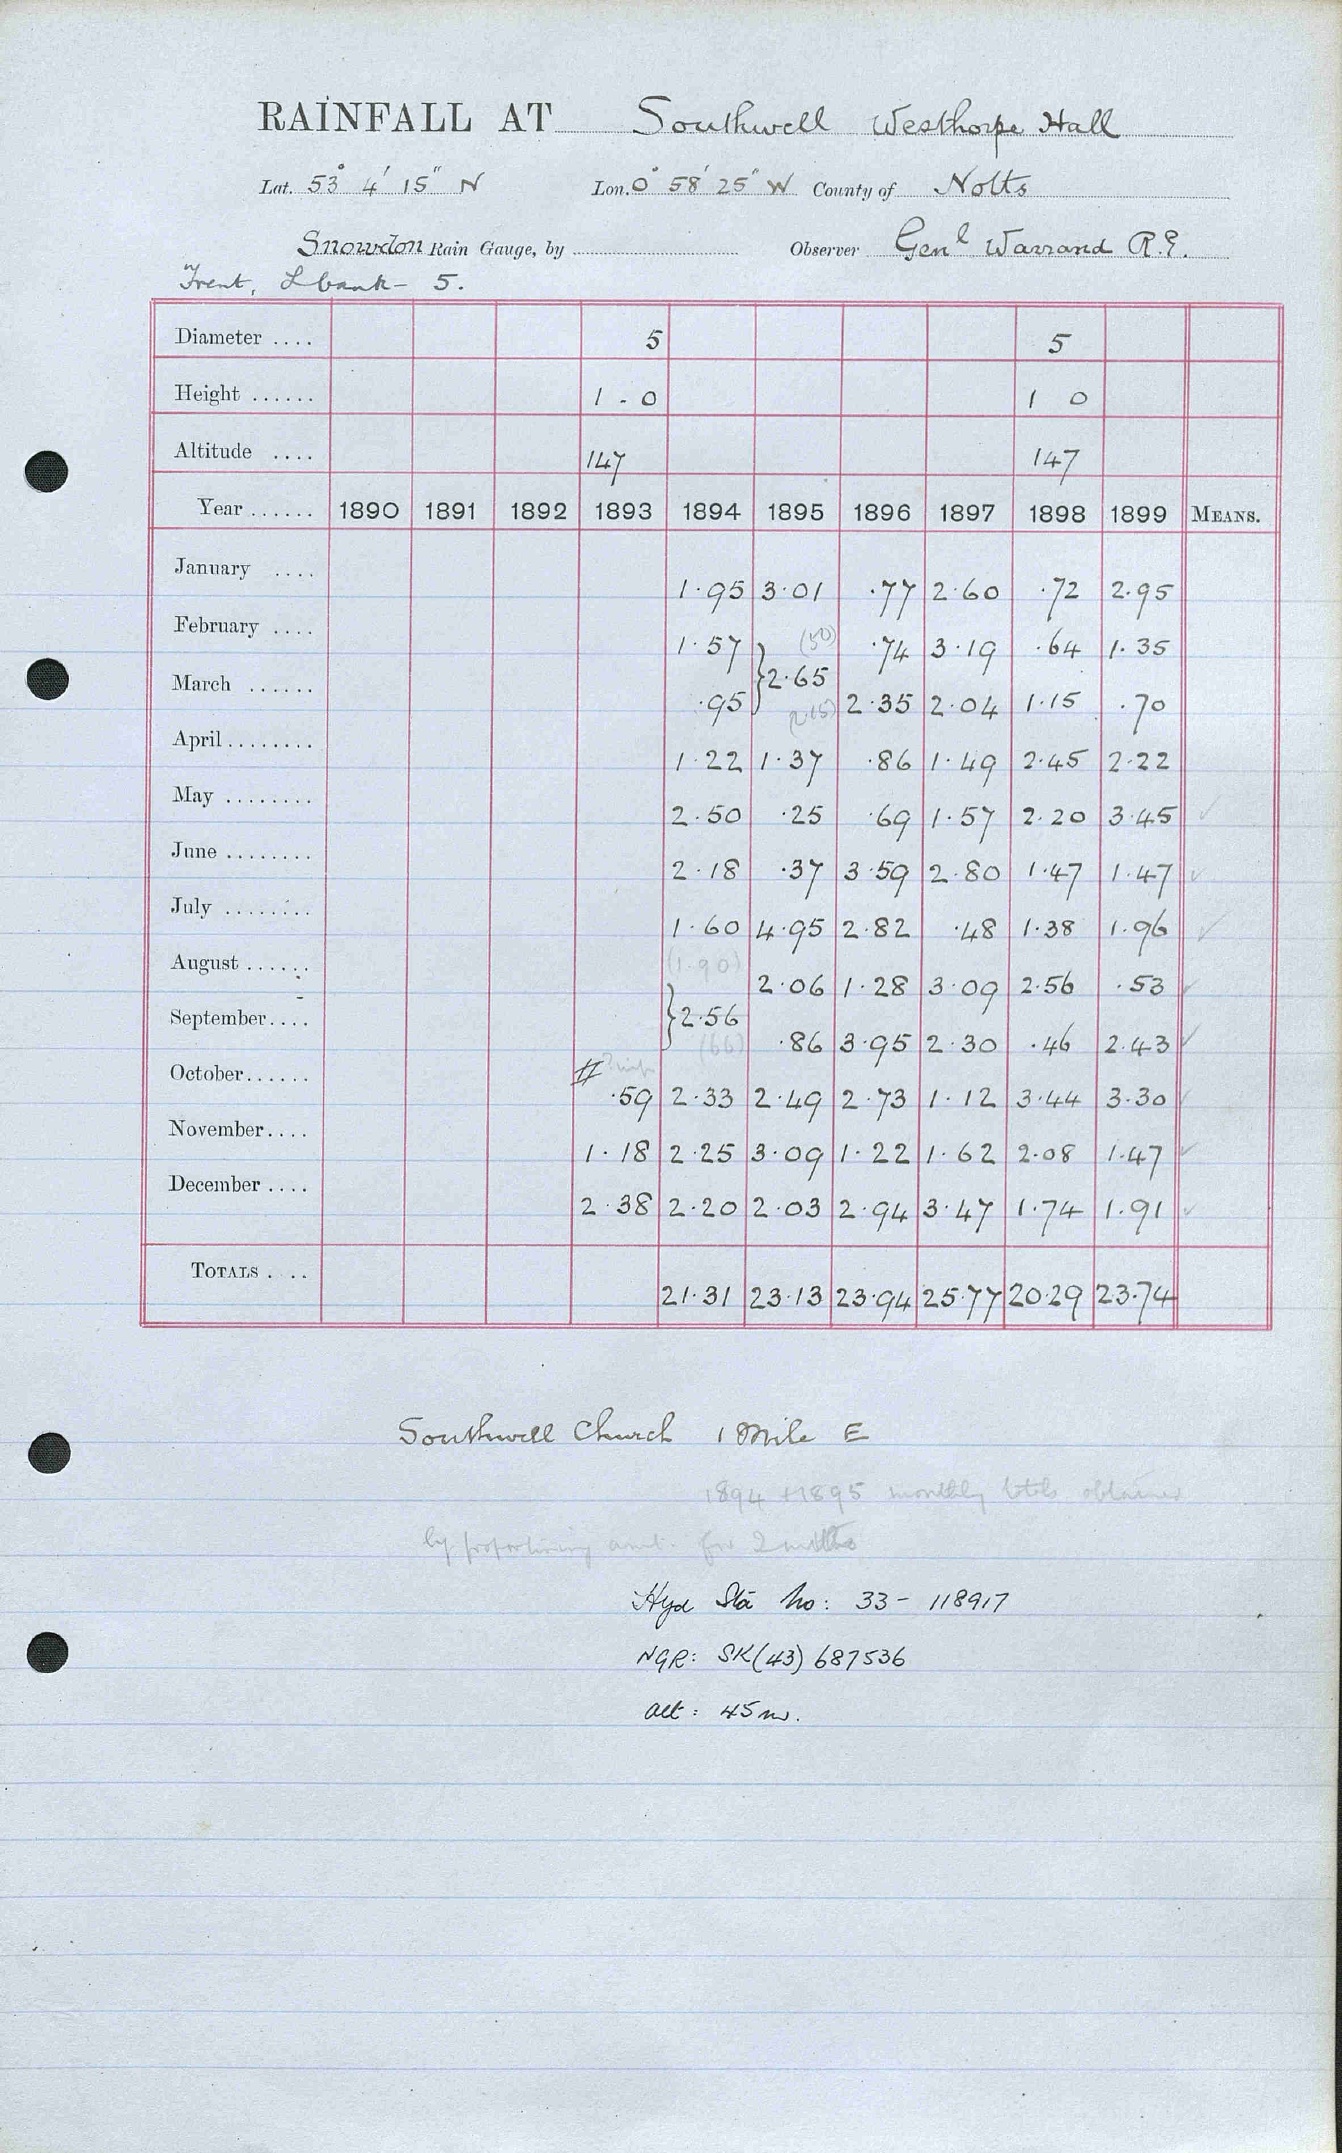 RAINFALL AT Southwell Westhorpe Hall
Lat. 53° 4' 15" N Lon. 0° 58' 25" W County of Notts
Snowdon Rain Gauge, by Observer Genl Warrand R.E.
Trent, L bank - 5.
Diameter .... 5 5
Height ...... 1 - 0 1 0
Altitude .... 147 147
Year ...... 1890 1891 1892 1893 1894 1895 1896 1897 1898 1899 MEANS.
January .... 1.95 3.01 .77 2.60 .72 2.95
February .... 1.57 (50) .74 3.19 .64 1.35
} 2.65
March ...... .95 (2.15) 2.35 2.04 1.15 .70
April ........ 1.22 1.37 .86 1.49 2.45 2.22
May ........ 2.50 .25 .69 1.57 2.20 3.45 ✓
June ........ 2.18 .37 3.59 2.80 1.47 1.47 ✓
July ........ 1.60 4.95 2.82 .48 1.38 1.96 ✓
August ...... (1.90) 2.06 1.28 3.09 2.56 .53 ✓
} 2.56
September.... (66) .86 3.95 2.30 .46 2.43 ✓
October...... # .59 2.33 2.49 2.73 1.12 3.44 3.30 ✓
November.... 1.18 2.25 3.09 1.22 1.62 2.08 1.47 ✓
December .... 2.38 2.20 2.03 2.94 3.47 1.74 1.91 ✓
TOTALS . .. 21.31 23.13 23.94 25.77 20.29 23.74
Southwell Church 1 Mile E
1894 + 1895 monthly totals obtained
by proportioning amt. for 2 mths
Hyd Sta No: 33 - 118917
NGR: SK(43) 687536
alt: 45m.